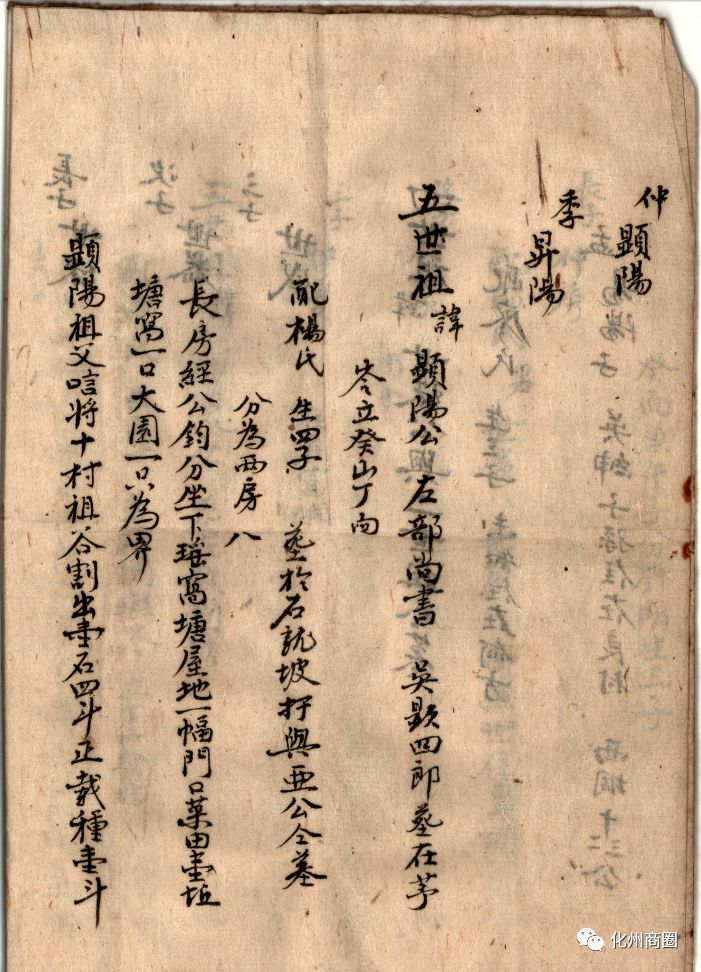 仲 顕陽
季 昇陽
五世祖 諱 顕陽公與左部尚書 吳顕四郎墓在茅
岑立癸山丁向
配楊氏 生四子 墓於石龍坡扞與亜公仝墓
分為两房 八
長房經公鈞分坐下瑶窩塘屋地一幅門口菜田壹坵
塘窩一口大園一只為界
顕陽祖父唁將十村祖谷割出壹石四斗正載種壹斗
化州商圈